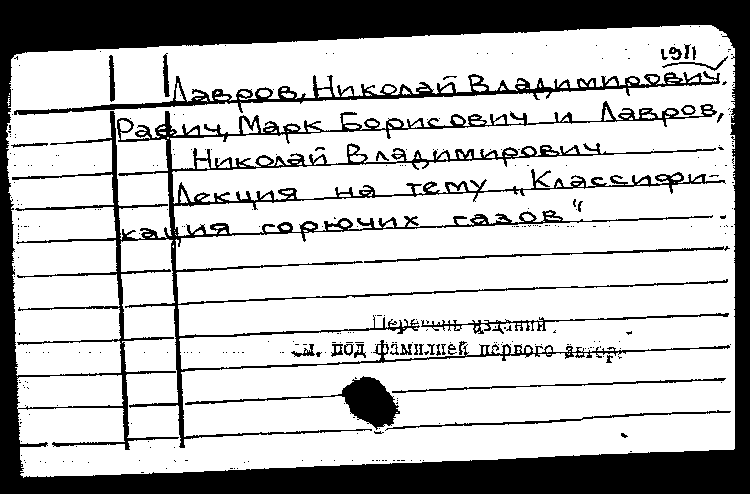 1911
Лавров, Николай Владимирович.
Равич, Марк Борисович и Лавров,
Николай Владимирович.
Лекция на тему „Классифи-
кация горючих газов“.
Перечень изданий
см. под фамилией первого автора